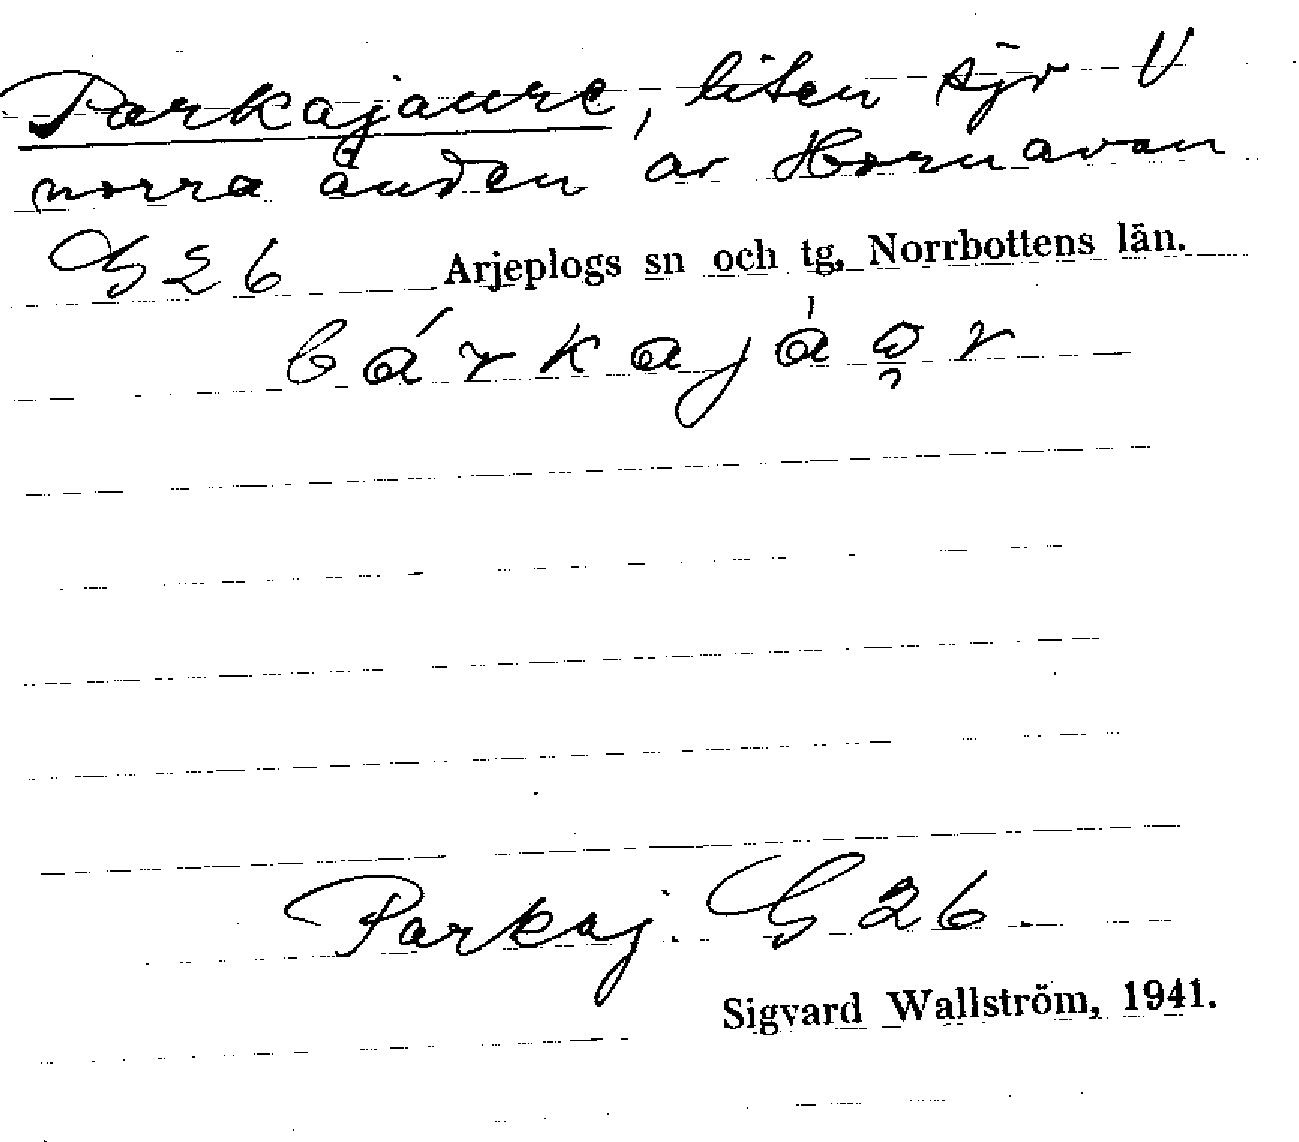 Parkajaure, liten sjö V
norra änden av Hornavan
G 26 Arjeplogs sn och tg, Norrbottens län.
Parkaj. G 26.
Sigvard Wallström, 1941.